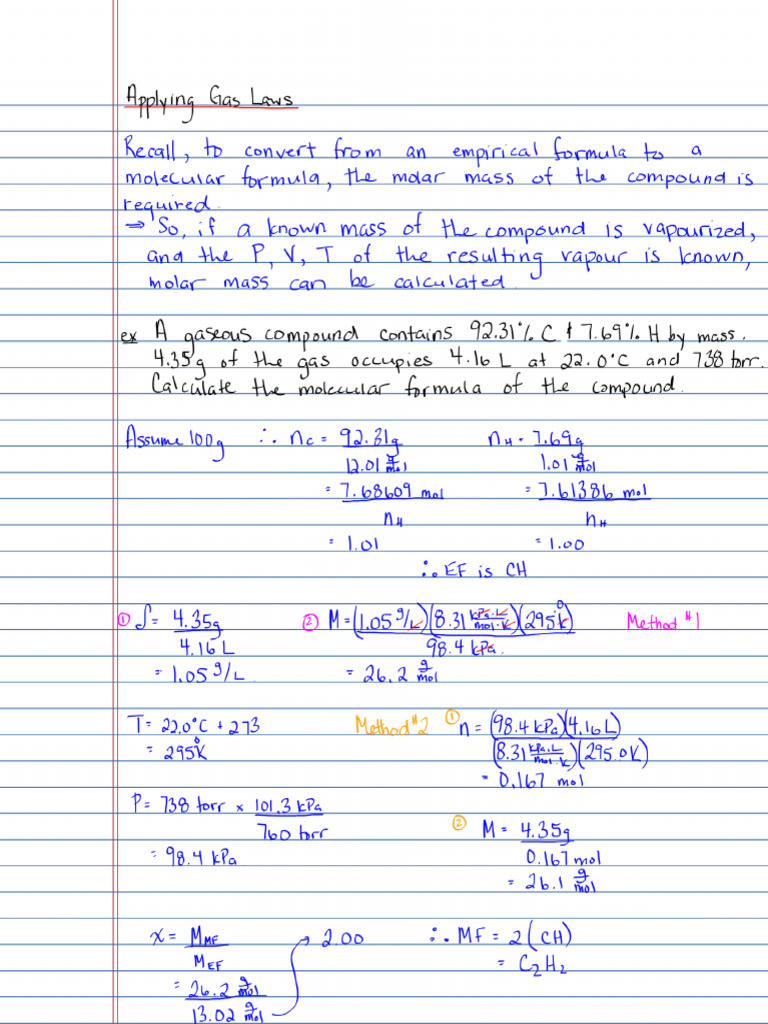 Applying Gas Laws
Recall, to convert from an empirical formula to a
molecular formula, the molar mass of the compound is
required.
⇒ So, if a known mass of the compound is vapourized,
and the P, V, T of the resulting vapour is known,
molar mass can be calculated.
ex A gaseous compound contains 92.31% C & 7.69% H by mass.
4.35g of the gas occupies 4.16 L at 22.0°C and 738 torr.
Calculate the molecular formula of the compound.
Assume 100g ∴ nC = 92.31g nH = 7.69g
12.01 g/mol 1.01 g/mol
= 7.68609 mol = 7.61386 mol
nH nH
= 1.01 = 1.00
∴ EF is CH
① ρ = 4.35g ② M = (1.05 g/L)(8.31 kPa·L/mol·K)(295.0K) Method #1
4.16 L 98.4 kPa
= 1.05 g/L = 26.2 g/mol
T = 22.0°C + 273 Method #2 ① n = (98.4 kPa)(4.16L)
= 295.0K (8.31 kPa·L/mol·K)(295.0K)
= 0.167 mol
P = 738 torr × 101.3 kPa
760 torr ② M = 4.35g
= 98.4 kPa 0.167 mol
= 26.1 g/mol
x = MMF → 2.00 ∴ MF = 2(CH)
MEF = C2H2
= 26.2 g/mol
13.02 g/mol